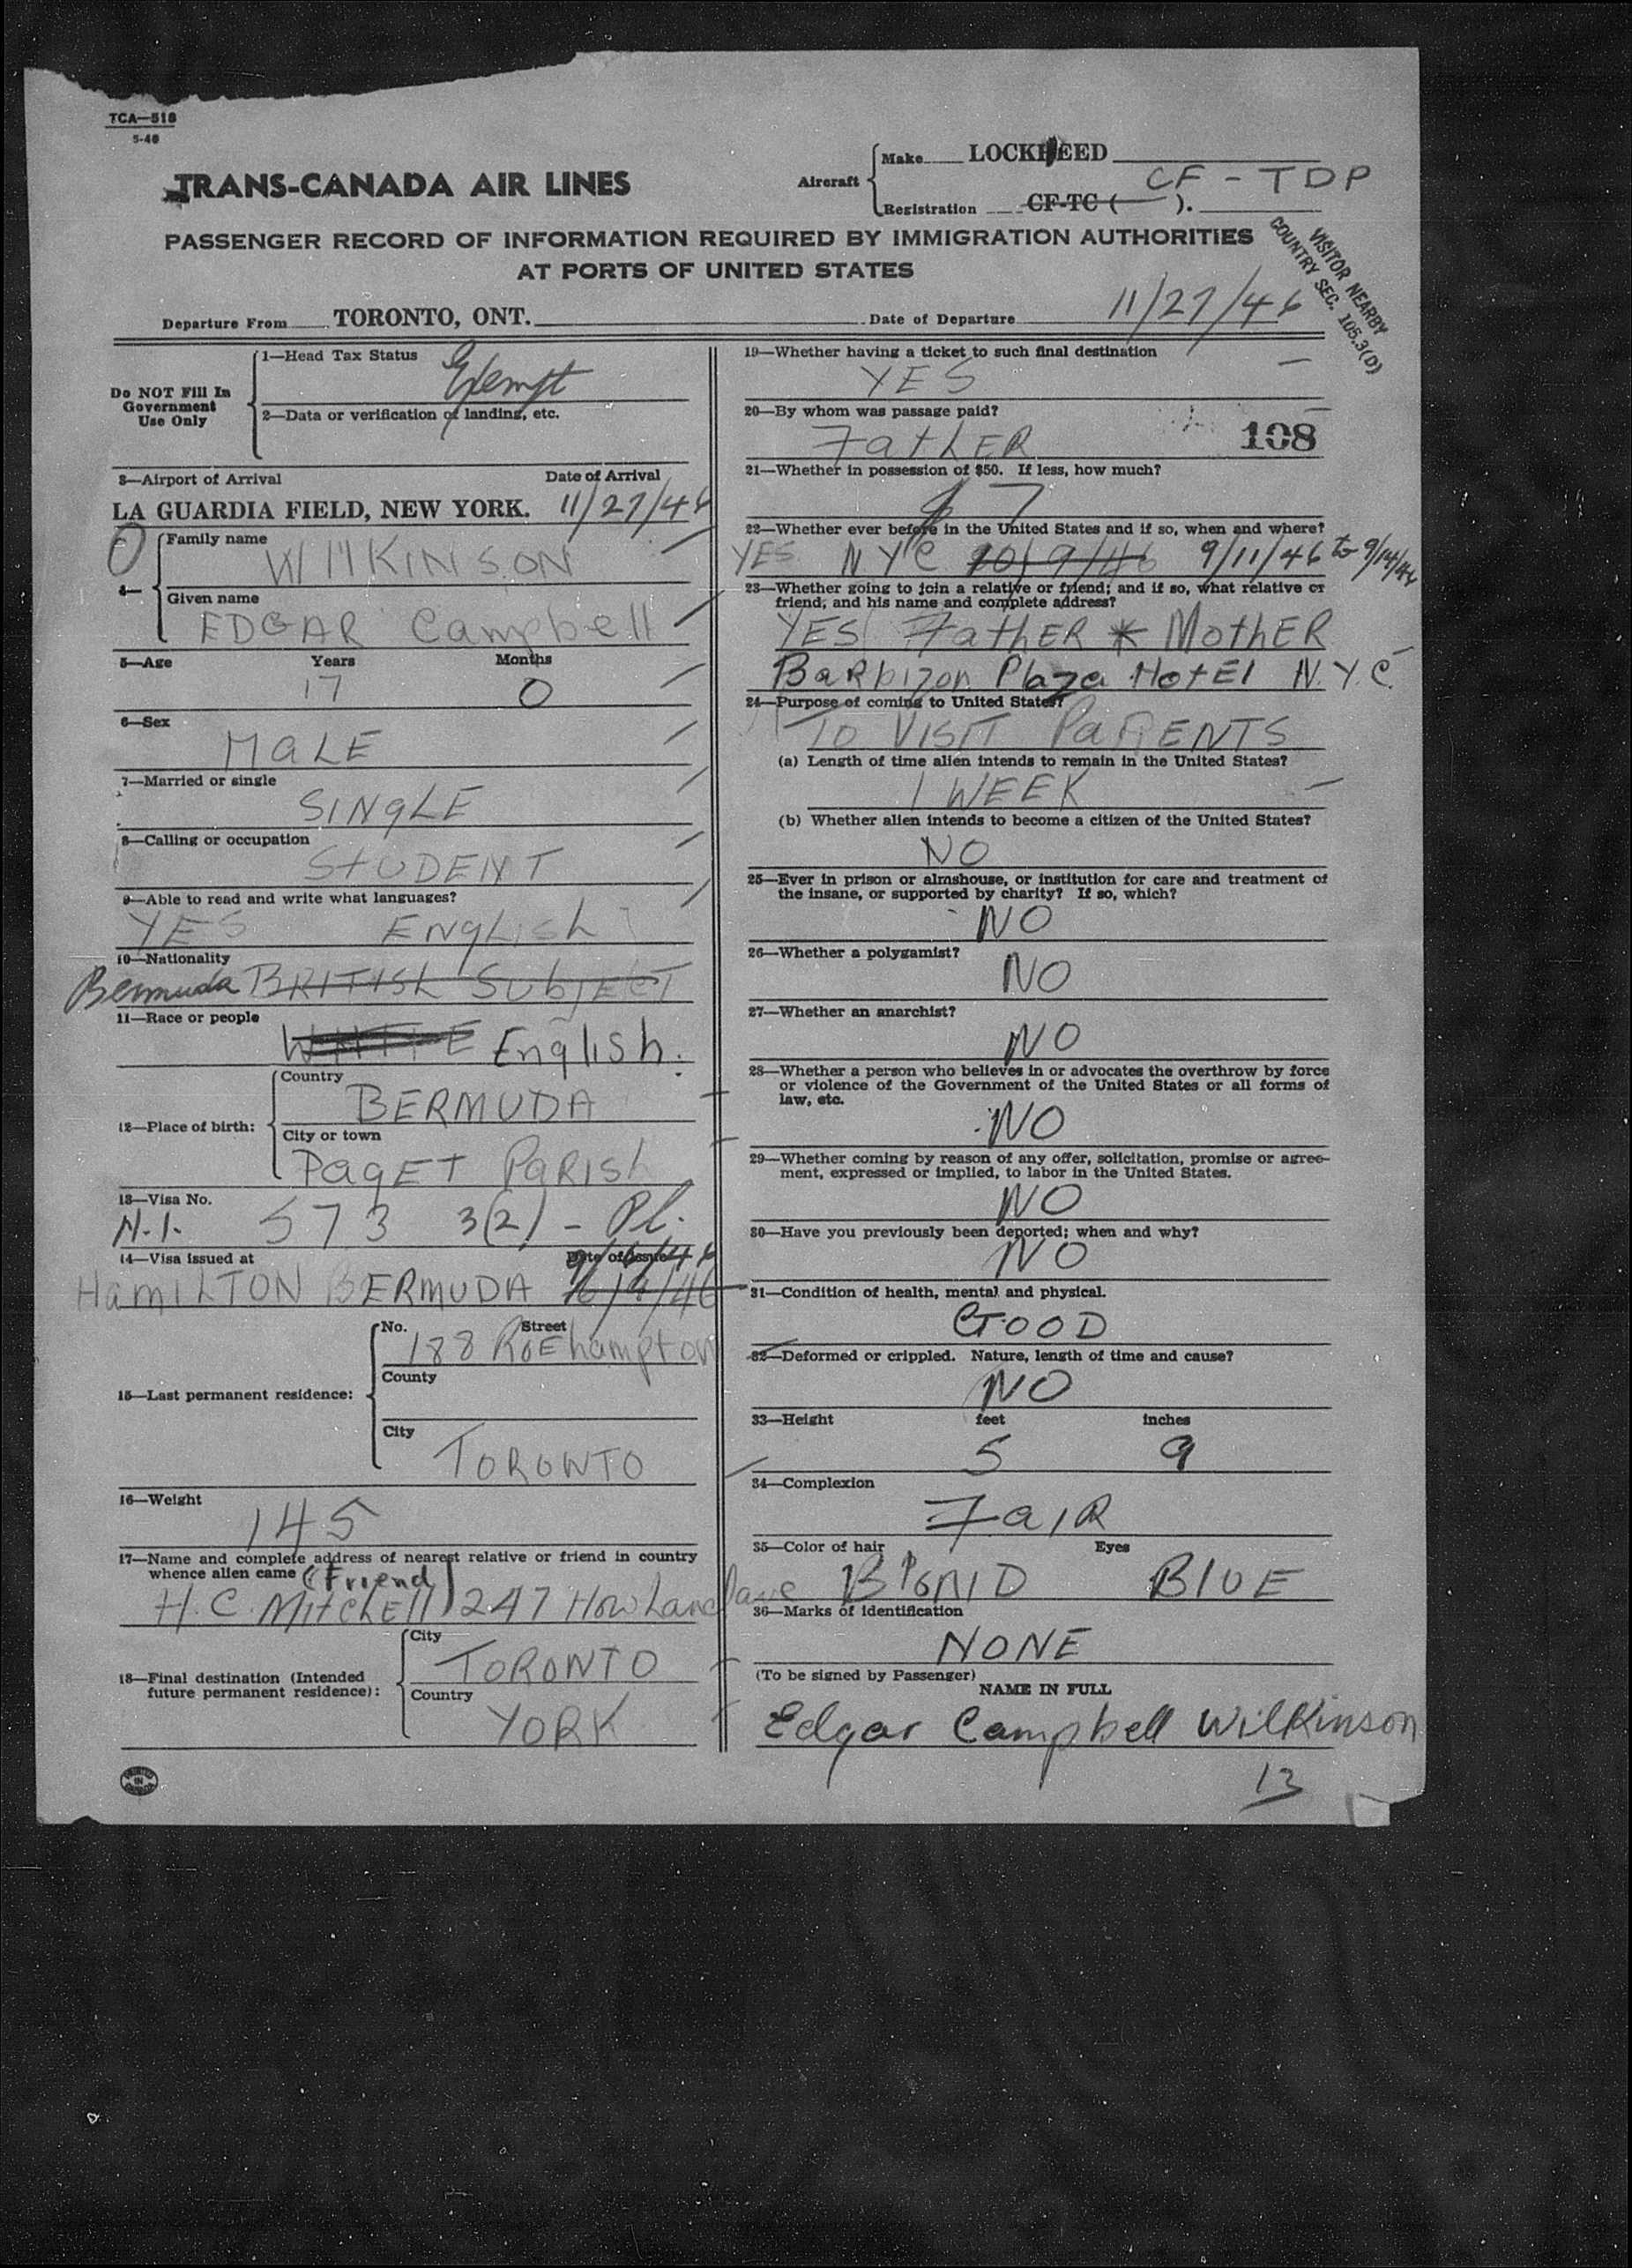 TCA—518
5-46
TRANS-CANADA AIR LINES
Aircraft
Make LOCKHEED
Registration CF-TC ( ). CF-TDP
PASSENGER RECORD OF INFORMATION REQUIRED BY IMMIGRATION AUTHORITIES
AT PORTS OF UNITED STATES
VISITOR NEARBY
COUNTRY SEC. 105.3(D)
Departure From TORONTO, ONT. Date of Departure 11/27/46
Do NOT Fill In
Government
Use Only
1—Head Tax Status
Exempt
2—Data or verification of landing, etc.
3—Airport of Arrival Date of Arrival
LA GUARDIA FIELD, NEW YORK. 11/27/46
4—
Family name
WIlKINSON
Given name
EDGAR Campbell
5—Age Years Months
17 0
6—Sex
MaLE
7—Married or single
SINgLE
8—Calling or occupation
StUDENT
9—Able to read and write what languages?
YES ENgLISh
10—Nationality
Bermuda BRITISh SUbJECT
11—Race or people
WHITE English.
12—Place of birth:
Country
BERMUDA
City or town
PAgET PARISh
13—Visa No.
N.I. 573 3(2) - Pl.
14—Visa issued at Date of Issue
HamILTON BERMUDA
15—Last permanent residence:
No. Street
188 RoEhampton
County
City
TORONTO
16—Weight
145
17—Name and complete address of nearest relative or friend in country
whence alien came (Friend)
H.C. MitchEll 247 Howland
18—Final destination (Intended
future permanent residence):
City
TORONTO
Country
YORK
PRINTED
IN
CANADA
19—Whether having a ticket to such final destination
YES
20—By whom was passage paid?
FathER
108
21—Whether in possession of $50. If less, how much?
$ 7
22—Whether ever before in the United States and if so, when and where?
YES NYC 10/9/46 9/11/46 to 9/14/46
23—Whether going to join a relative or friend; and if so, what relative or
friend; and his name and complete address?
YES FathER * MothER
BaRbizon Plaza HotEl N.Y.C.
24—Purpose of coming to United States?
TO VISIT PaRENTS
(a) Length of time alien intends to remain in the United States?
1 WEEK
(b) Whether alien intends to become a citizen of the United States?
NO
25—Ever in prison or almshouse, or institution for care and treatment of
the insane, or supported by charity? If so, which?
NO
26—Whether a polygamist?
NO
27—Whether an anarchist?
NO
28—Whether a person who believes in or advocates the overthrow by force
or violence of the Government of the United States or all forms of
law, etc.
NO
29—Whether coming by reason of any offer, solicitation, promise or agree-
ment, expressed or implied, to labor in the United States.
NO
30—Have you previously been deported; when and why?
NO
31—Condition of health, mental and physical.
GOOD
32—Deformed or crippled. Nature, length of time and cause?
NO
33—Height feet inches
5 9
34—Complexion
FaIR
35—Color of hair Eyes
BloND BlUE
36—Marks of identification
NONE
(To be signed by Passenger)
NAME IN FULL
Edgar Campbell Wilkinson
13